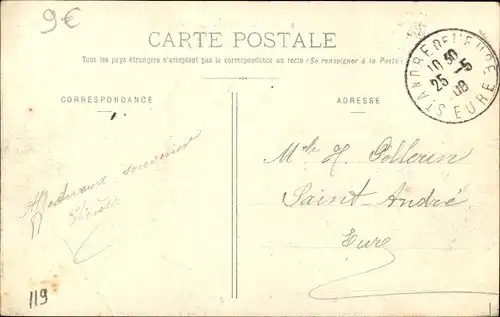 9€
CARTE POSTALE
Tous les pays étrangers n'acceptent pas la correspondance au recto (Se renseigner à la Poste)
CORRESPONDANCE
ADRESSE
ST ANDRE DE L'EURE
10 30
25 -5
08
EURE
Mlle H. Pellerin
Saint-André
Eure
Affectueux souvenir
119